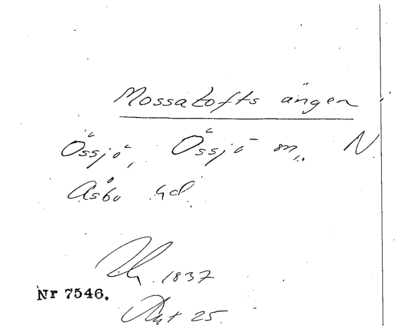 Mossatofts ängen
Össjö, Össjö sn, N
Åsbo hd
1837
Nr 7546.
Akt 25